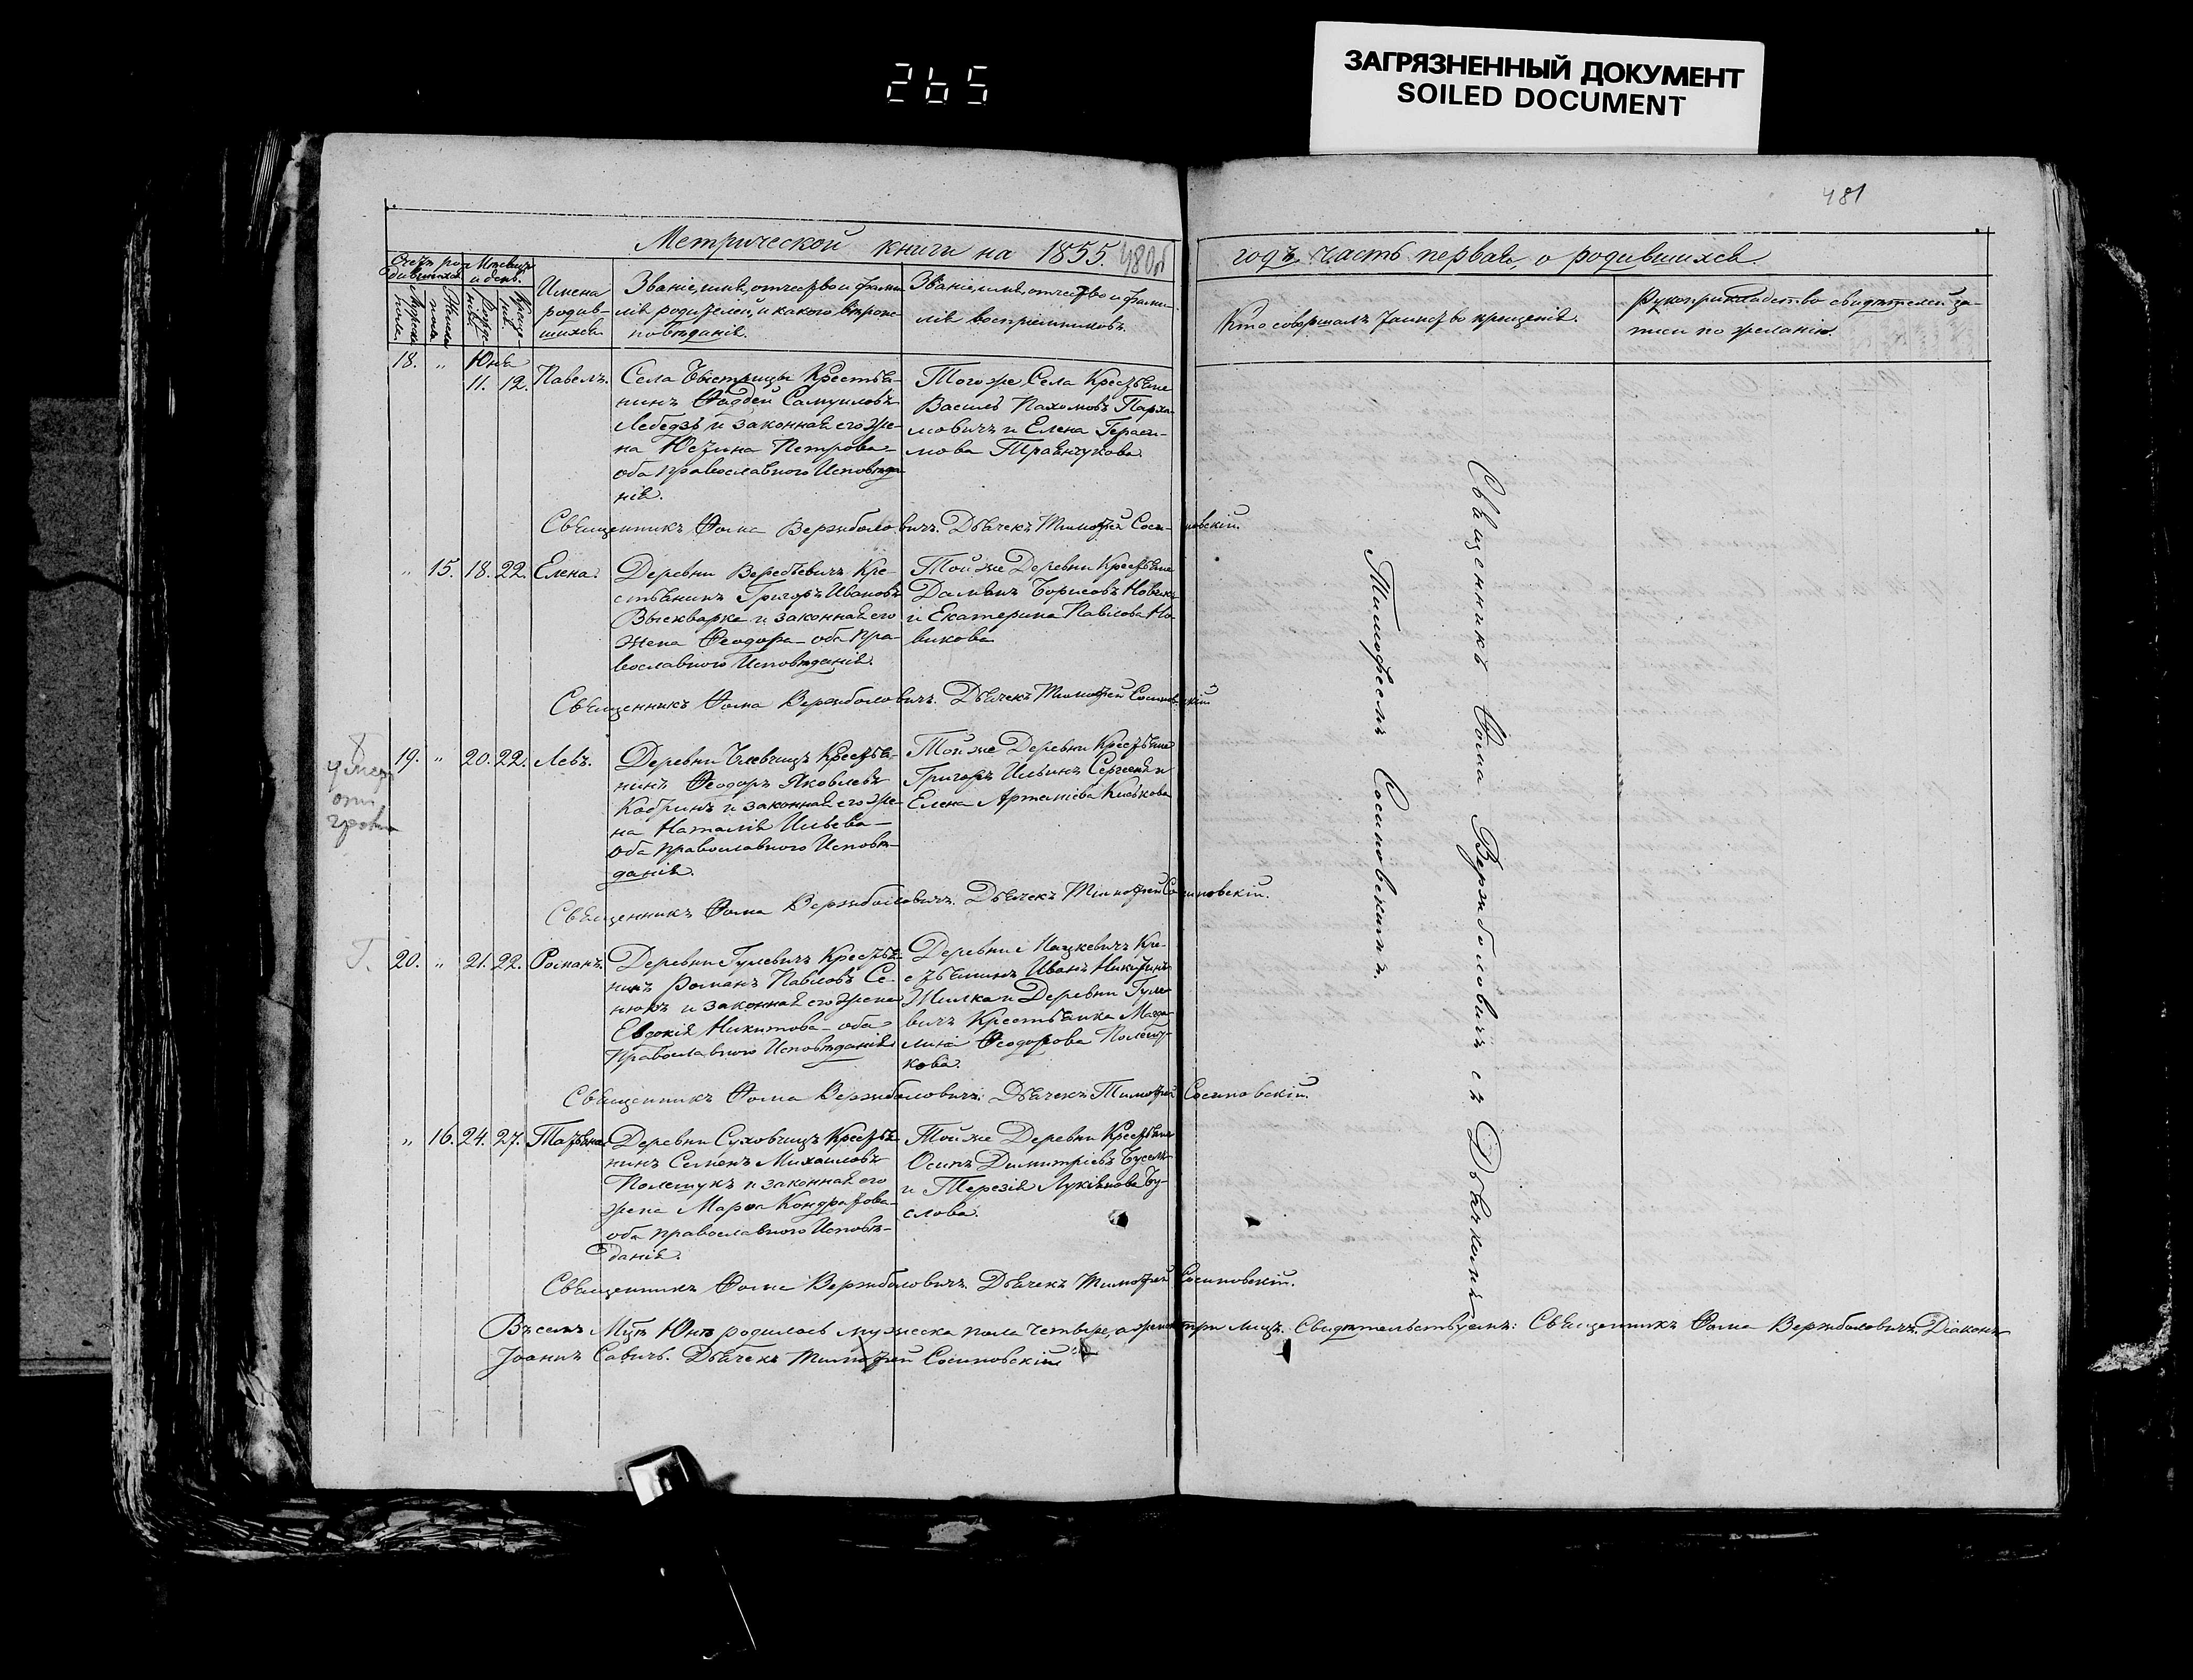 265
ЗАГРЯЗНЕННЫЙ ДОКУМЕНТ
SOILED DOCUMENT
481
Метрической книги на 1855. 480об
годъ часть первая, о родившихся
Счетъ ро-
дившихся
Мѣсяцъ
и день.
Мужеска
пола.
Женска
пола.
Рожде-
нія.
Креще-
нія.
Имена
родив-
шихся
Званіе, имя, отчество и фами-
лія родителей, и какого вѣроис-
повѣданія.
Званіе, имя, отчество и фами-
лія воспріемниковъ.
Кто совершалъ таинство крещенія.
Рукоприкладство свидѣтелей за-
писи по желанію.
18. " Юня
11. 12. Павелъ.
Села Быстрицы Крестья-
нинъ Фаддей Самуиловъ
Лебедзь и законная его же-
на Юстина Петрова
оба православнаго Исповѣда-
нія.
Того же Села Крестьяне
Василь Пахомовъ Пархо-
мовичъ и Елена Гераси-
мова
Священникъ Фома Вержболовичъ. Дьячекъ Тимофей Сосиновскій.
" 15. 18. 22. Елена.
Деревни Веребьевичъ Кре-
стьянинъ Григоръ Ивановъ
Выскварка и законная его
жена Феодора оба пра-
вославнаго Исповѣданія.
Той же Деревни Крестьяне
Дамьянъ Борисовъ Новикъ
и Екатерина Павлова Но-
викова
Священникъ Фома Вержболовичъ. Дьячекъ Тимофей Сосиновскій
умеръ
от
19. " 20. 22. Левъ.
Деревни Крестья-
нинъ Феодоръ Яковлевъ
Кобринъ и законная его же-
на Наталія Ильева
оба православнаго Исповѣ-
данія.
Той же Деревни Крестьяне
Григоръ Ильинъ Сергеня и
Елена Артеміева
Священникъ Фома Вержболовичъ. Дьячекъ Тимофей Сосиновскій.
20. " 21. 22. Романъ.
Деревни Гулевичъ Крестья-
нинъ Романъ Павловъ Се-
нюкъ и законная его жена
Евдокія Никитова оба
Православнаго Исповѣданія
Деревни Пацкевичъ Кре-
стьянинъ Иванъ
Жилка и Деревни Гуле-
вичъ Крестьянка Магда-
лина Феодорова Полещу-
кова.
Священникъ Фома Вержболовичъ. Дьячекъ Тимофей Сосиновскій.
" 16. 24. 27. Татьяна
Деревни Суховчицъ Крестья-
нинъ Семенъ Михаиловъ
Полещукъ и законная его
жена Марфа Кондратова
оба православнаго Исповѣ-
данія.
Той же Деревни Крестьяне
Осипъ Димитріевъ Буселъ
и Терезія Лукіянова Бу-
слова.
Священникъ Фома Вержболовичъ. Дьячекъ Тимофей Сосиновскій.
Священникъ Фома Вержболовичъ съ Дьячкомъ
Тимофеемъ Сосиновскимъ.
Въ семъ Мцѣ Юнѣ родилось мужеска пола четыре, а женска три лицъ. Свидѣтельствуемъ: Священникъ Фома Вержболовичъ. Діаконъ
Іоаннъ Савичъ. Дьячекъ Тимофей Сосиновскій